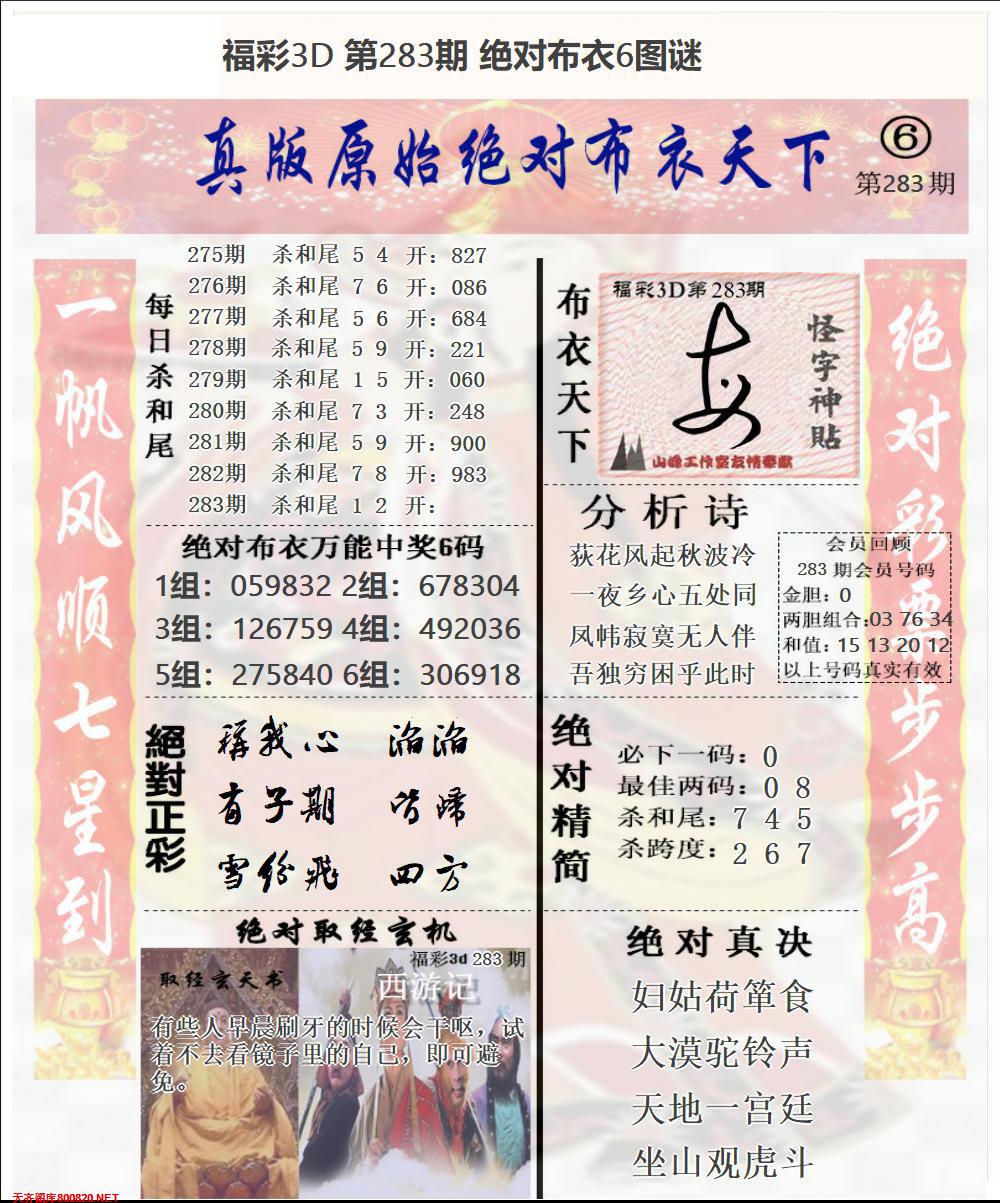 福彩3D 第283期 绝对布衣6图谜
真版原始绝对布衣天下
⑥
第283期
一帆风顺七星到
每日杀和尾
275期 杀和尾 5 4 开: 827
276期 杀和尾 7 6 开: 086
277期 杀和尾 5 6 开: 684
278期 杀和尾 5 9 开: 221
279期 杀和尾 1 5 开: 060
280期 杀和尾 7 3 开: 248
281期 杀和尾 5 9 开: 900
282期 杀和尾 7 8 开: 983
283期 杀和尾 1 2 开:
绝对布衣万能中奖6码
1组：059832 2组：678304
3组：126759 4组：492036
5组：275840 6组：306918
絕對正彩
稱我心 滔滔
有子期 皆歸
雪纷飛 四方
绝对取经玄机
福彩3d 283 期
取经玄天书
西游记
有些人早晨刷牙的时候会干呕，试
着不去看镜子里的自己，即可避
免。
布衣天下
福彩3D第283期
怪字神贴
山峰工作室友情奉献
分析诗
荻花风起秋波冷
一夜乡心五处同
凤帏寂寞无人伴
吾独穷困乎此时
会员回顾
283 期会员号码
金胆：0
两胆组合:03 76 34
和值：15 13 20 12
以上号码真实有效
绝对精简
必下一码：0
最佳两码：0 8
杀和尾：7 4 5
杀跨度：2 6 7
绝对真决
妇姑荷箪食
大漠驼铃声
天地一宫廷
坐山观虎斗
绝对彩票步步高
天齐图库800820.NET